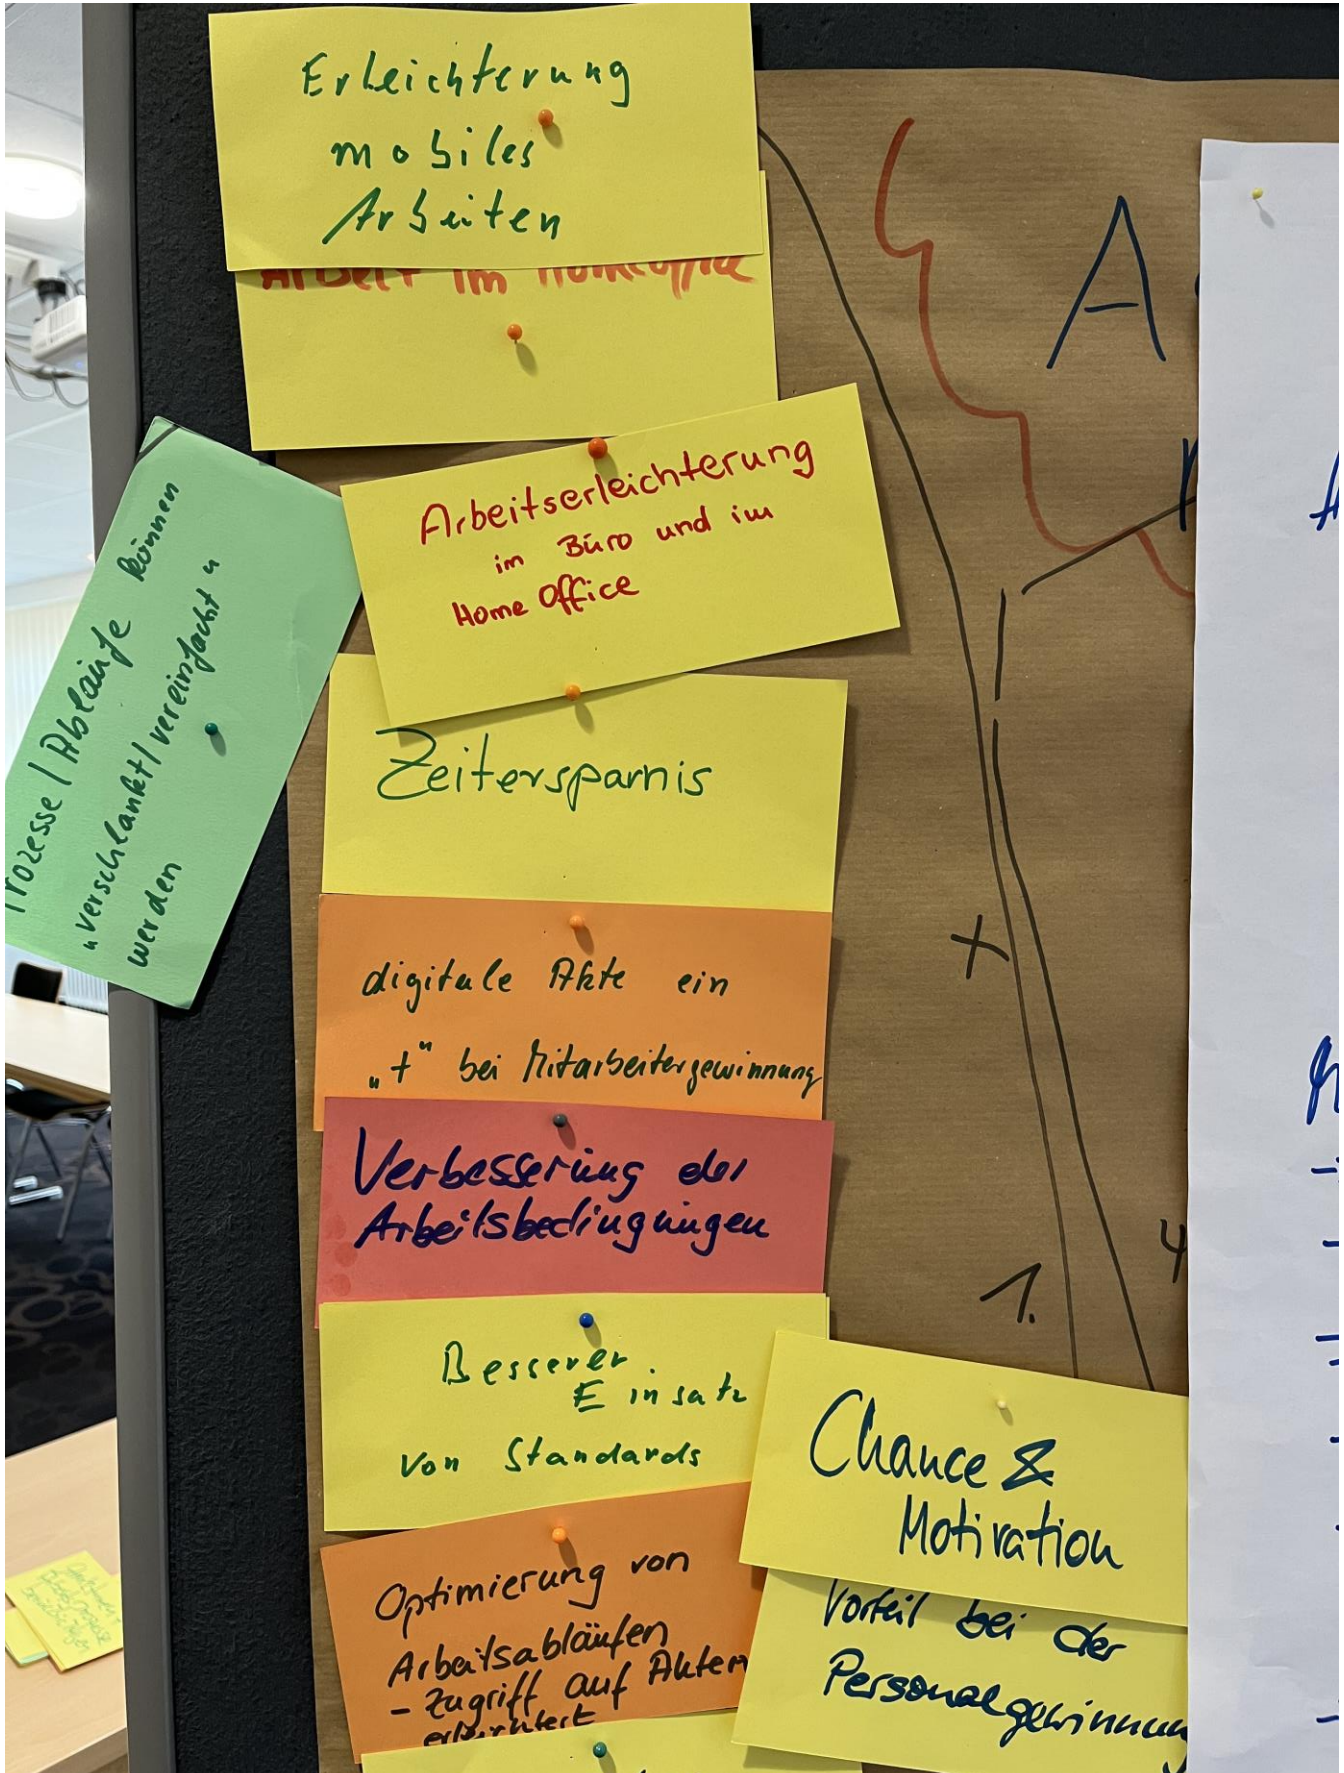 Erleichterung
mobiles
Arbeiten
Arbeit im Homeoffice
Arbeitserleichterung
im Büro und im
Home Office
Prozesse / Abläufe können
„verschlankt / vereinfacht"
werden
Zeitersparnis
digitale Akte ein
„+" bei Mitarbeitergewinnung
Verbesserung der
Arbeitsbedingungen
Besserer
Einsatz
von Standards
Optimierung von
Arbeitsabläufen
- Zugriff auf Akten
erleichtert
Chance &
Motivation
Vorteil bei der
Personalgewinnung
A
+
1.
4